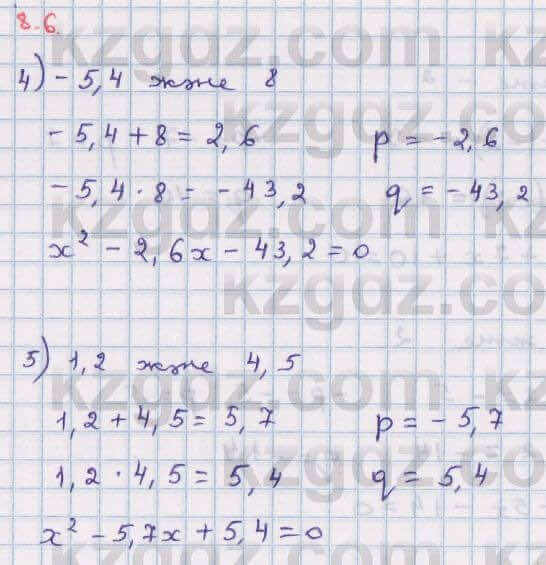 8.6.
4) - 5,4 және 8
- 5,4 + 8 = 2,6 p = - 2,6
- 5,4 · 8 = - 43,2 q = - 43,2
x² - 2,6x - 43,2 = 0
5) 1,2 және 4,5
1,2 + 4,5 = 5,7 p = - 5,7
1,2 · 4,5 = 5,4 q = 5,4
x² - 5,7x + 5,4 = 0
kzgdz.com